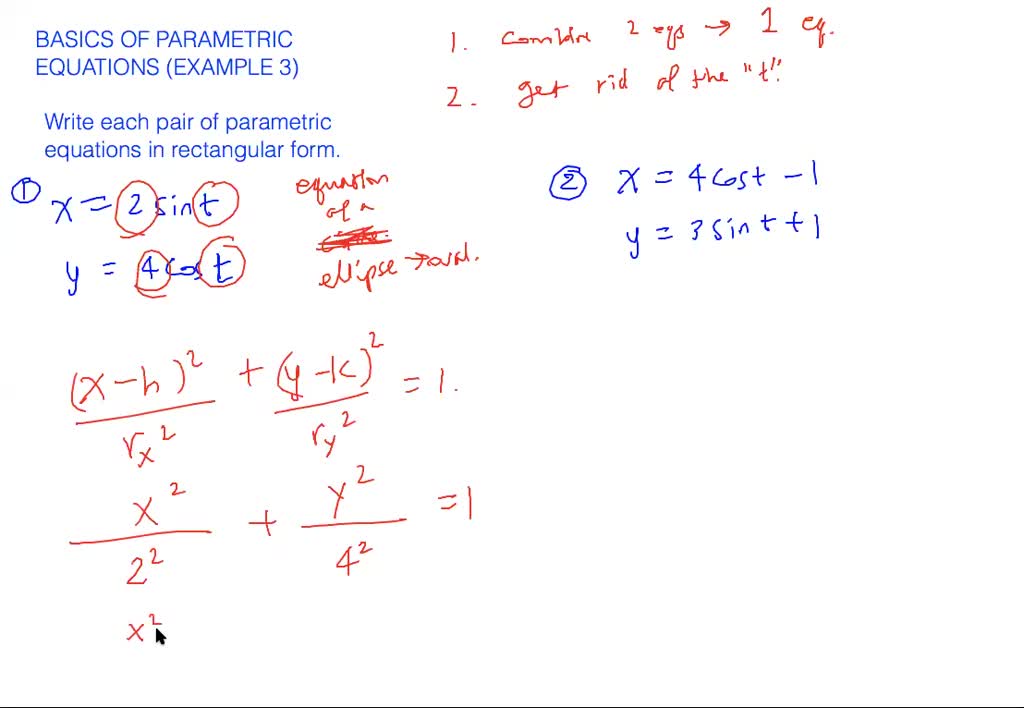 BASICS OF PARAMETRIC
EQUATIONS (EXAMPLE 3)
1. combine 2 eqs → 1 eq.
2. get rid of the "t".
Write each pair of parametric
equations in rectangular form.
① x = 2 sin t
y = 4 cos t
equation
of a
ellipse → oval.
② x = 4 cos t - 1
y = 3 sin t + 1
(x - h)² + (y - k)² = 1.
r_x² r_y²
x² + y² = 1
2² 4²
x²